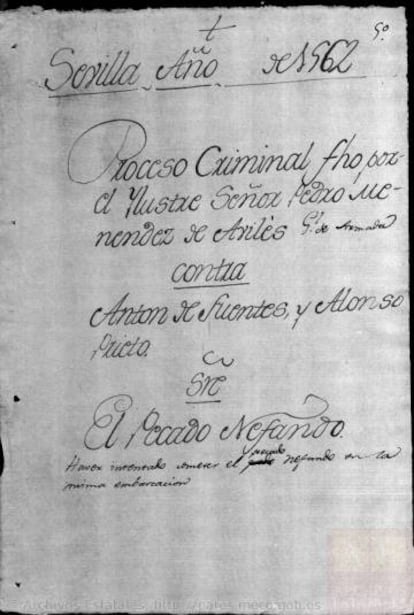 5º
Sevilla Año de 1562
Proceso Criminal fho, por
el Yllustre Señor Pedro Me-
nendez de Aviles G.l de Armada
contra
Anton de Fuentes, y Alonso
Prieto.
Sre
El Pecado Nefando.
Haver intentado cometer el pecado nefando en la
misma embarcacion